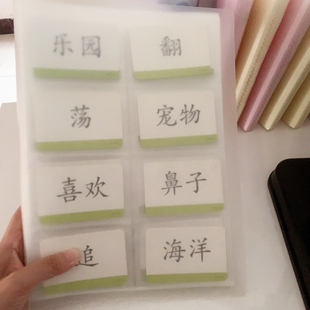 乐园 翻
荡 宠物
喜欢 鼻子
追 海洋